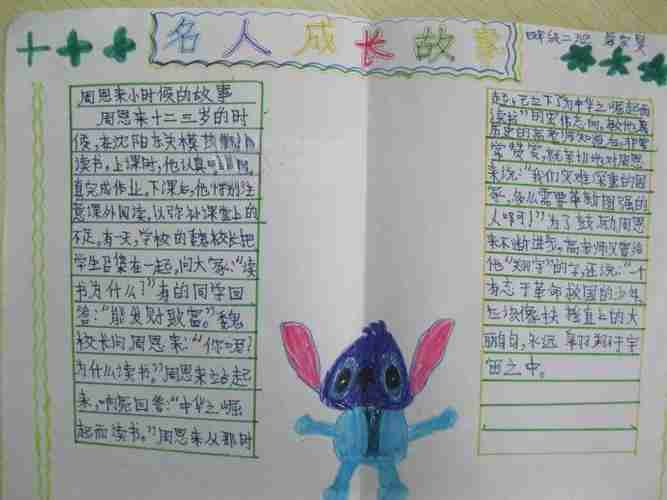 名人成长故事
四年级二班
周恩来小时候的故事
周恩来十二三岁的时
候,在沈阳东关模
读书,上课时,他认真
真完成作业。下课后,他特别注
意课外阅读,以弥补课堂上的
不足,有一天,学校的魏校长把
学生召集在一起,问大家:“读
书为什么?”有的同学回
答:“能发财致富。”魏
校长问周恩来:“你呢?
为什么读书。”周恩来站起
来,响亮回答:“中华之崛
起而读书。”周恩来从那时
起,已立下了为中华之崛起而
读书”的宏伟志向,教他
历史的高老师知道后,非常
来说:“我们灾难深重的国
家,多么需要奋发图强的
人啊!”为了鼓励周恩
来不断进步,高老师又曾给
他“翔宇”的字,还说:“一个
有志于革命救国的少年
应该像
丽的鸟,永远翱翔于宇
宙之中。